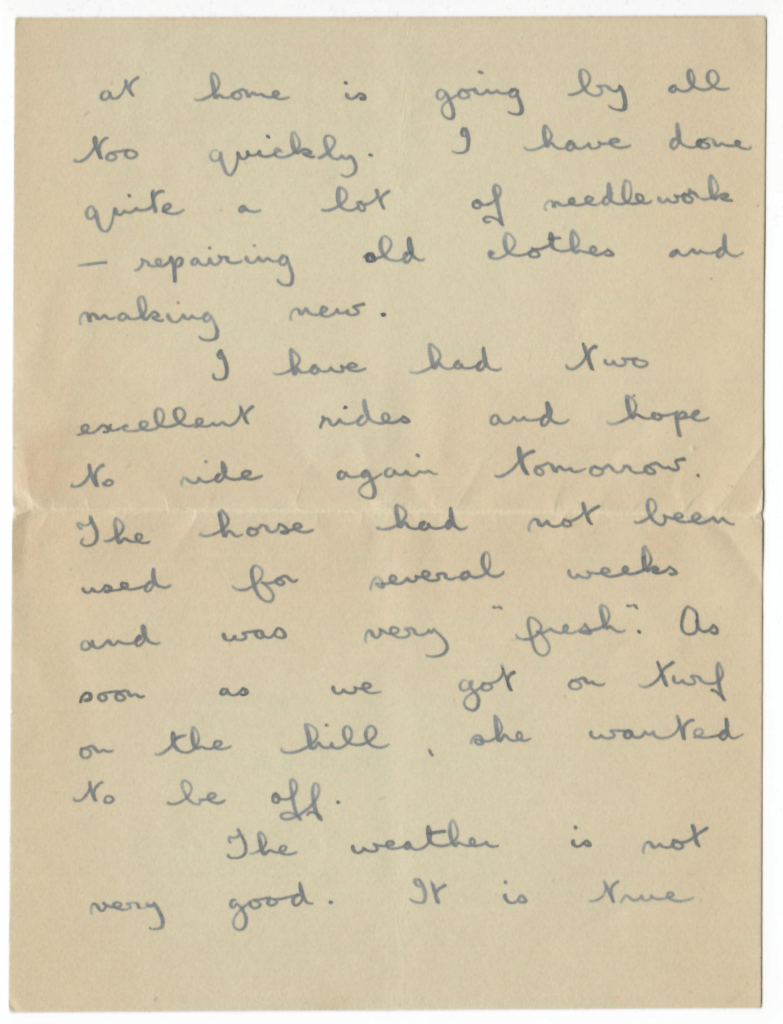 at home is going by all
too quickly. I have done
quite a lot of needlework
— repairing old clothes and
making new.
I have had two
excellent rides and hope
to ride again tomorrow.
The horse had not been
used for several weeks
and was very "fresh". As
soon as we got on turf
on the hill, she wanted
to be off.
The weather is not
very good. It is true